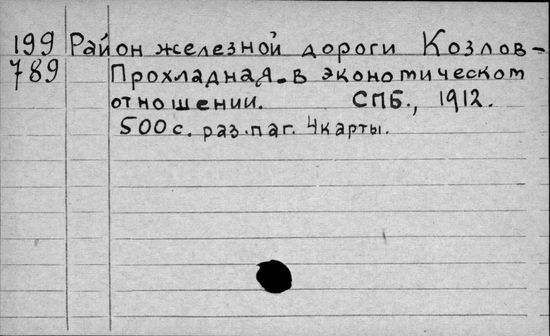 199 Район железной дороги Козлов-
789 Прохладная в экономическом
отношении. СПБ., 1912.
500 с. раз.паг. 4 карты.